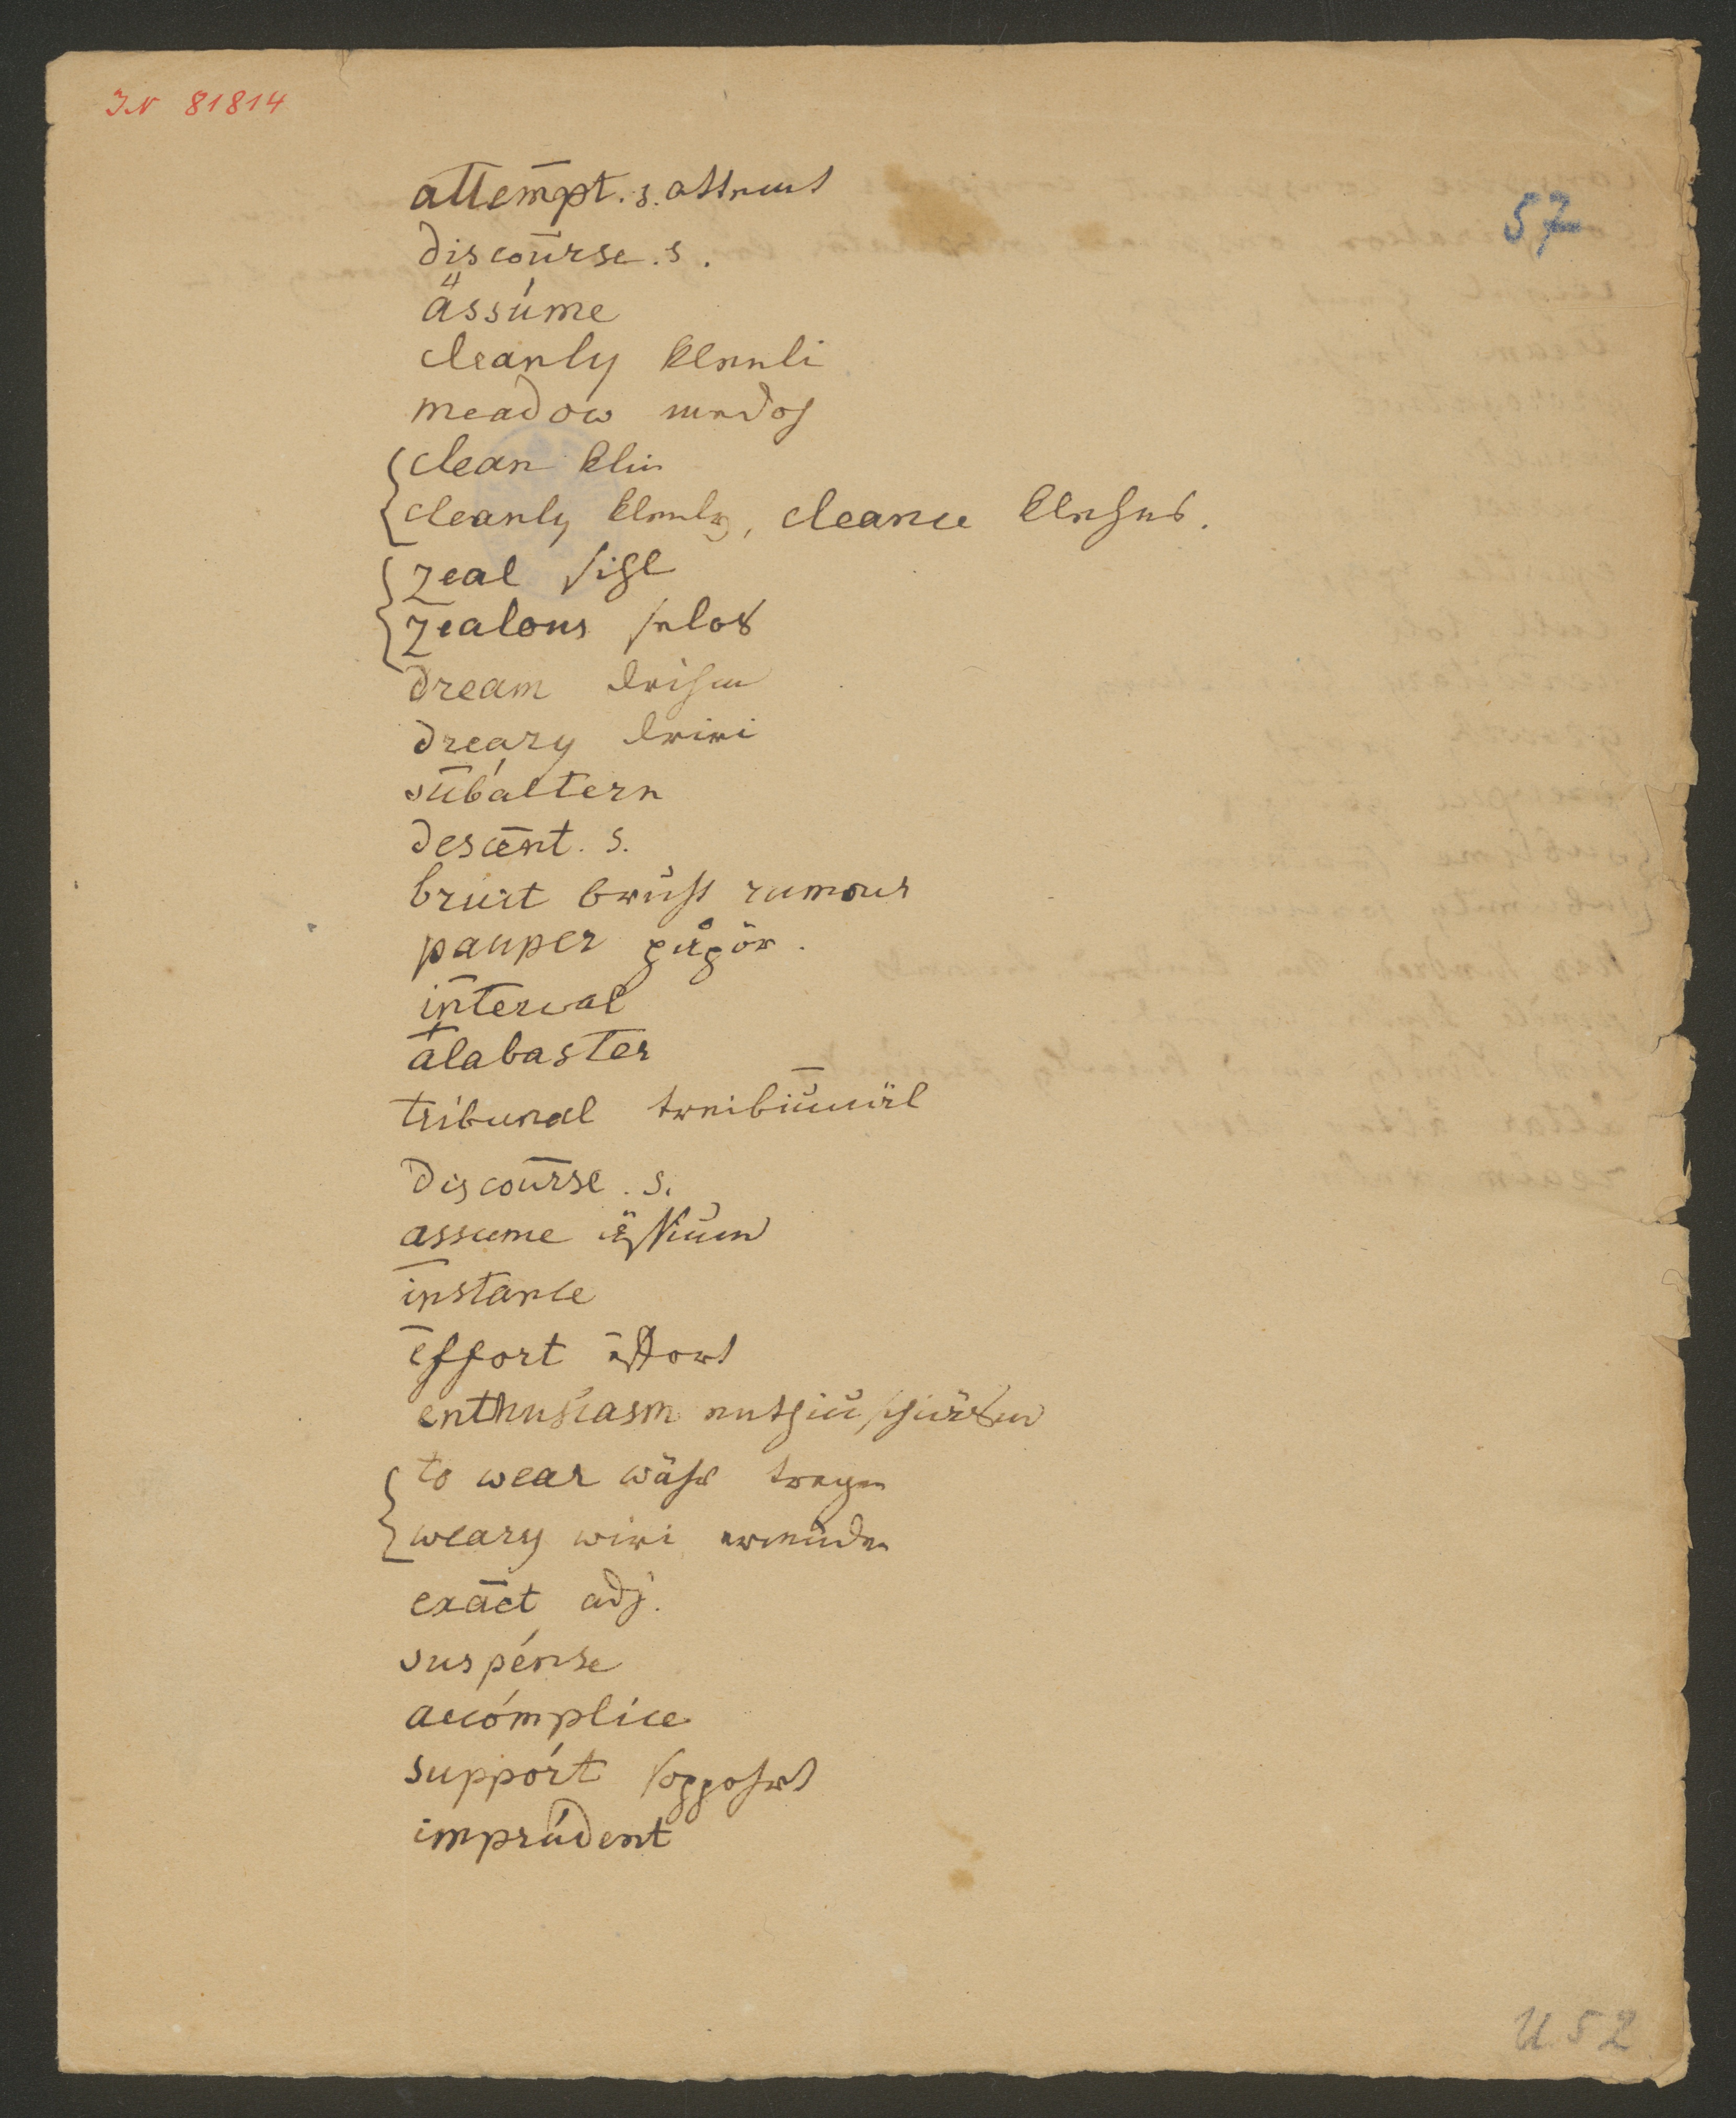 JN 81814
57
attem̅pt. s. attemt
discoūrse. s.
ässúme
cleanly klennli
meadow medoh
clean klin
cleanly klenly, cleance klehns.
zeal sihl
zealous selos
dream drihm
dreary driri
sūbáltern
descēnt. s.
bruit bruht rumour
pauper påpör.
īnterval
ālabaster
tribunal treibiūnäl
discoūrse. s.
assume ässium
īnstance
ēffort ēffort
enthusiasm enthiu
to wear währ tragen
weary wiri ermüden
exāct adj.
suspénse
accómplice
suppórt soppohrt
imprúdent
U 52